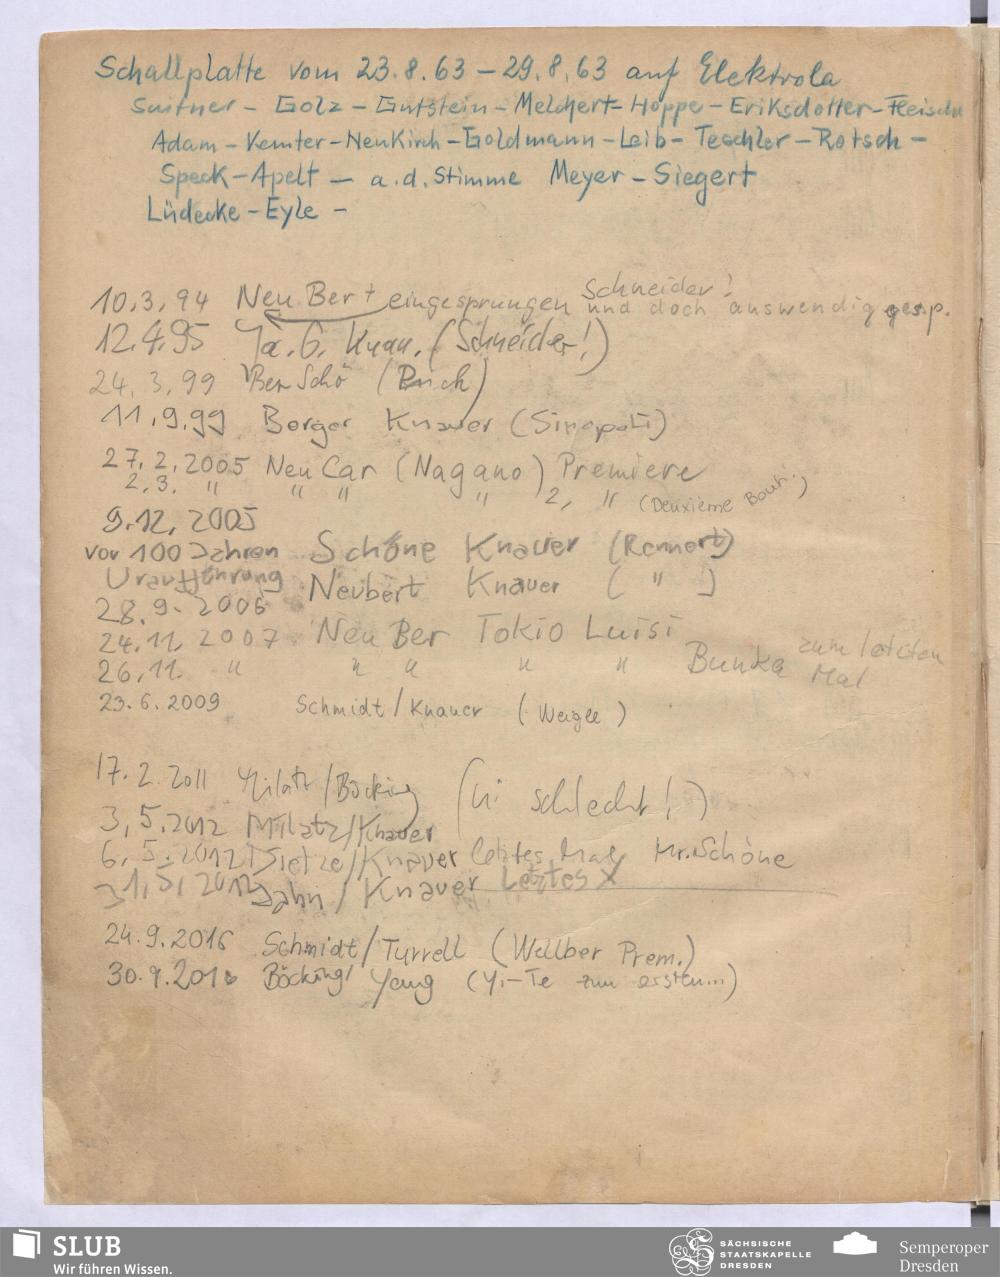 Schallplatte vom 23.8.63 – 29.8.63 auf Elektrola
Suitner – Golz – Gutstein – Melchert – Hoppe – Eriksdotter – Fleischer
Adam – Kemter – Neukirch – Goldmann – Leib – Teschler – Rotsch –
Speck – Apelt – a.d. Stimme Meyer – Siegert
Lüdecke – Eyle –
Schneider!
10.3.94 Neu Bert eingesprungen und doch auswendig gesp.
12.4.95 Ja. G. Knau. (Schneider!)
24.3.99 Ber Schö
11.9.99 Berger Knauer (Sinopoli)
27.2.2005 Neu Car (Nagano) Premiere
2.3. " " " " 2. " (Deuxième Bour.)
9.12.2005
vor 100 Jahren Schöne Knauer (Rennert)
Uraufführung Neubert Knauer ( " )
28.9.2006
24.11.2007 Neu Ber Tokio Luisi
26.11. " " " " " Bunka zum letzten Mal
23.6.2009 Schmidt / Knauer (Weigle)
17.2.2011 Milatz / Böcking ( schlecht!)
3.5.2012 Milatz / Knauer
6.5.2012 Dietze / Knauer letztes Mal Mr. Schöne
31.5.2012 Jahn / Knauer Letztes X
24.9.2016 Schmidt / Turrell (Wellber Prem.)
30.9.2016 Böcking / Yang (Yi-Te zum ersten...)
SLUB
Wir führen Wissen.
SÄCHSISCHE
STAATSKAPELLE
DRESDEN
Semperoper
Dresden